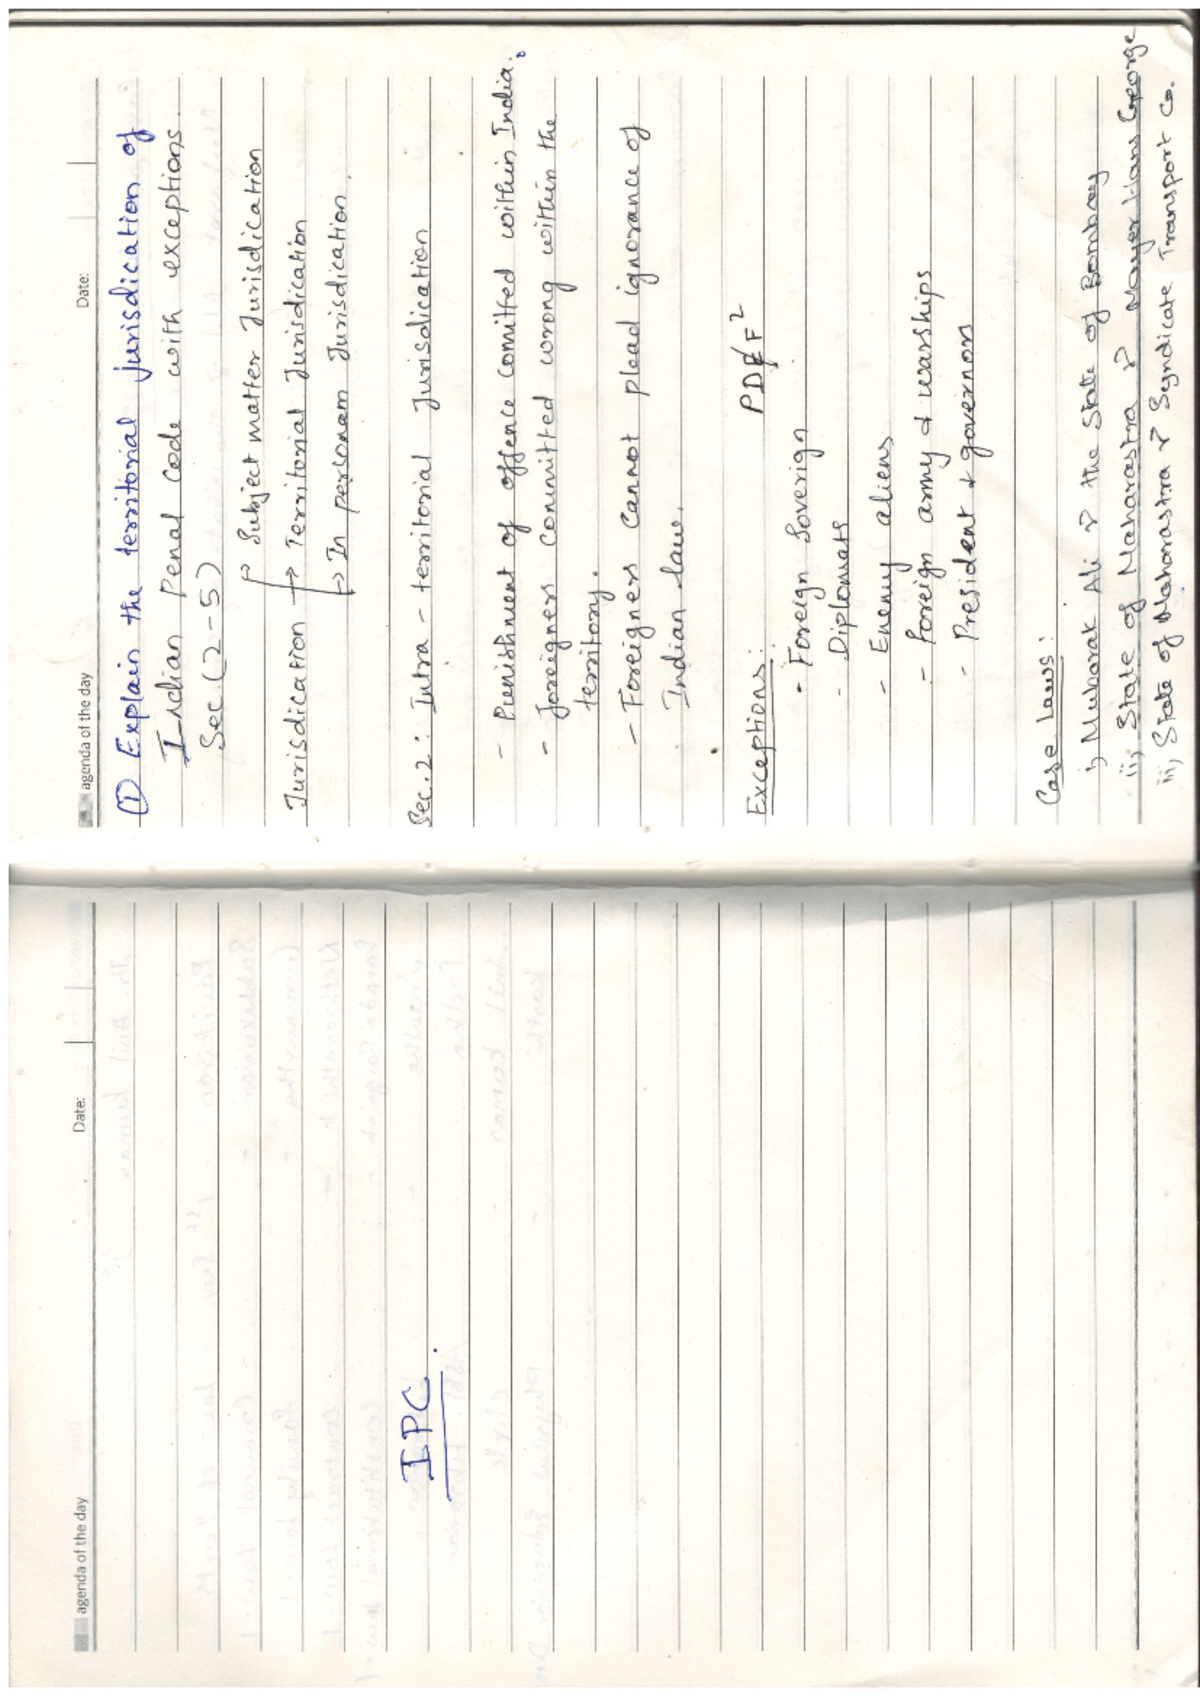 agenda of the day
Date:
IPC
agenda of the day
Date:
① Explain the territorial jurisdication of
Indian Penal Code with exceptions.
Sec. (2-5)
Jurisdication → Subject matter Jurisdication
→ Territorial Jurisdication
→ In personam Jurisdication.
Sec. 2 : Intra - territorial Jurisdication
- Punishment of offence comitted within India.
- Foreigners committed wrong within the
territory.
- Foreigners cannot plead ignorance of
Indian law.
Exceptions: PDEF²
- Foreign Soverign
- Diplomats
- Enemy aliens
- Foreign army & warships
- President & governors
Case Laws:
i, Mubarak Ali v the State of Bombay
ii, State of Maharastra v Mayer Hans George
iii, State of Maharastra v Syndicate Transport Co.